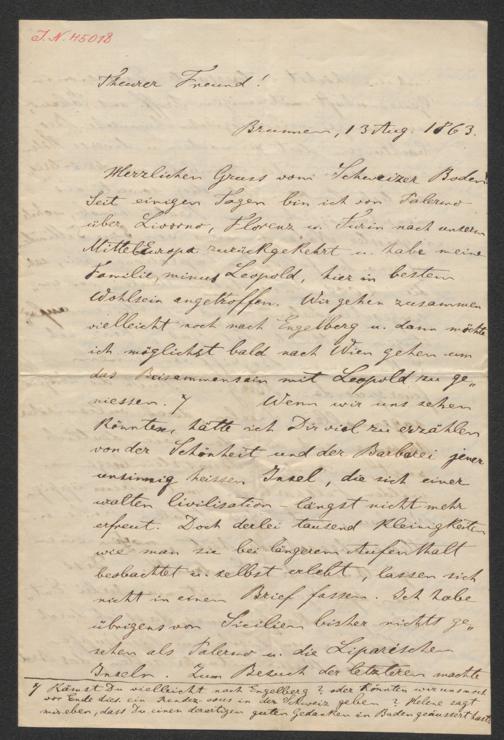 J. N. 45018
Theurer Freund!
Brunnen, 13 Aug. 1863.
Herzlichen Gruss vom Schweizer Boden!
Seit einigen Tagen bin ich von Palermo
über Livorno, Florenz u. Turin nach unserem
Mitteleuropa zurückgekehrt u. habe meine
Familie, minus Leopold, hier in bestem
Wohlsein angetroffen. Wir gehen zusammen
vielleicht noch nach Engelberg u. dann möchte
ich möglichst bald nach Wien gehen um
das Beisammensein mit Leopold zu ge„
niessen. 7 Wenn wir uns sehen
könnten, hätte ich Dir viel zu erzählen
von der Schönheit und der Barbarei jener
unsinnig heissen Insel, die sich einer
uralten Civilisation – längst nicht mehr
erfreut. Doch derlei tausend Kleinigkeiten
wie man sie bei längerem Aufenthalt
beobachtet u. selbst erlebt, lassen sich
nicht in einen Brief fassen. Ich habe
übrigens von Sicilien bisher nichts ge„
sehen als Palermo u. die Liparischen
Inseln. Zum Besuch der letzteren machte
7 Kämst Du vielleicht nach Engelberg? oder könnten wir uns noch
vor Ende dies. ein Rendez-vous in der Schweiz geben? Helene sagt
mir eben, dass Du einen derartigen guten Gedanken in Baden geäussert hast.